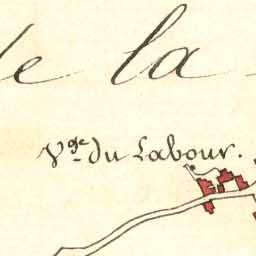 de la
Vge du Labour.